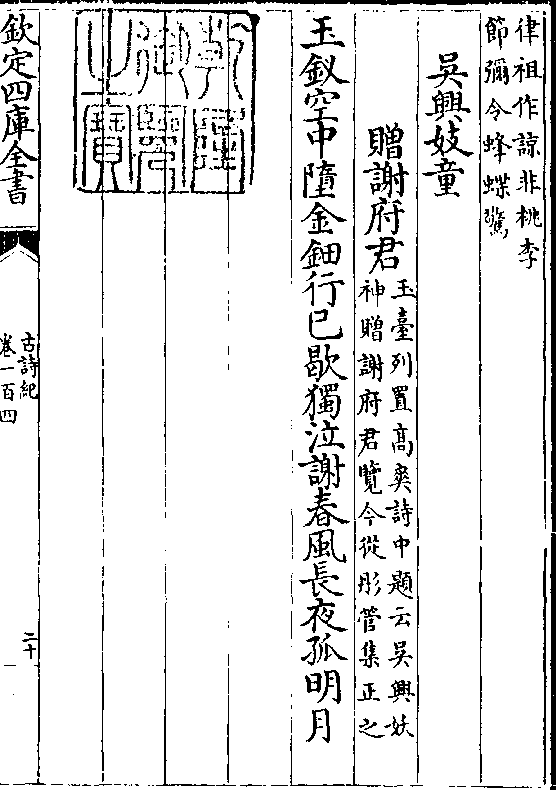 律祖作諒非桃李
節彌令蜂蝶驚
吳興妓童
贈謝府君
玉臺列置高爽詩中題云吳興妖
神贈謝府君覽今從彤管集正之
玉釵空中墮金鈿行已歇獨泣謝春風長夜孤明月
乾隆
御覽
之寶
欽定四庫全書
古詩紀
卷一百四
二十